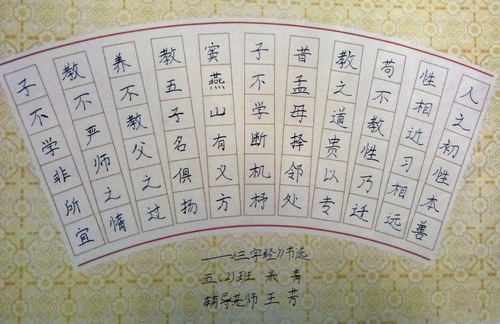 人之初性本善
性相近习相远
苟不教性乃迁
教之道贵以专
昔孟母择邻处
子不学断机杼
窦燕山有义方
教五子名俱扬
养不教父之过
教不严师之惰
子不学非所宜
——《三字经》节选
五(2)班 米青
辅导老师 王芳